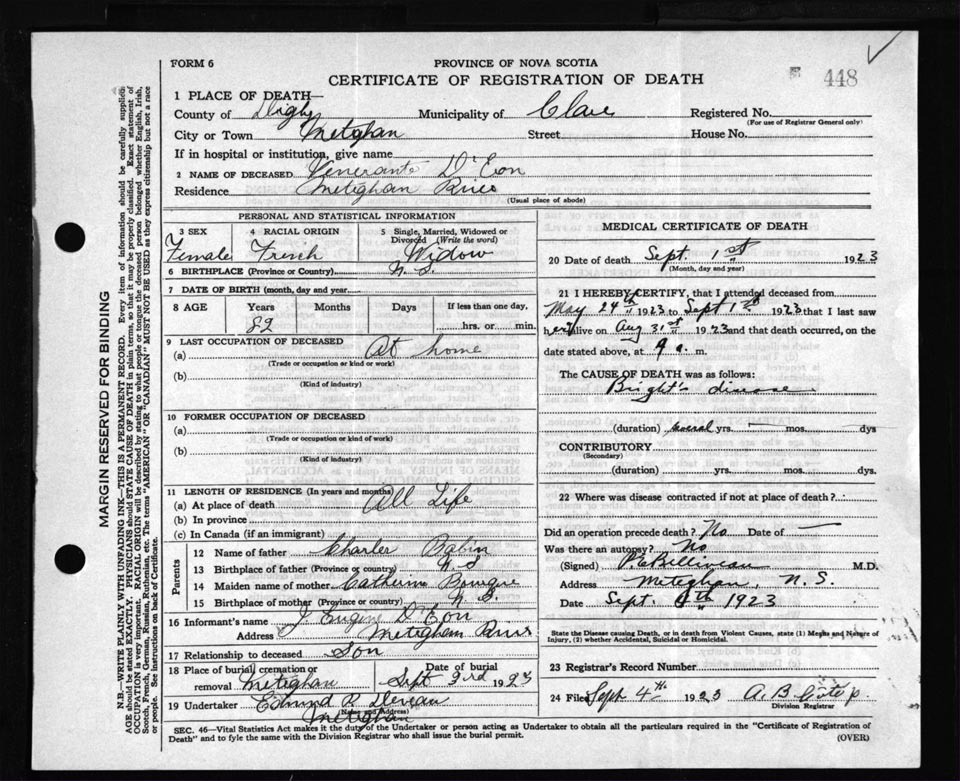 FORM 6
PROVINCE OF NOVA SCOTIA
CERTIFICATE OF REGISTRATION OF DEATH
448
1 PLACE OF DEATH—
County of Digby Municipality of Clare Registered No.
(For use of Registrar General only)
City or Town Meteghan Street House No.
If in hospital or institution, give name
2 NAME OF DECEASED Venerante D'Eon
Residence Meteghan River
(Usual place of abode)
PERSONAL AND STATISTICAL INFORMATION
3 SEX 4 RACIAL ORIGIN 5 Single, Married, Widowed or Divorced (Write the word)
Female French Widow
6 BIRTHPLACE (Province or Country) N. S.
7 DATE OF BIRTH (month, day and year)
8 AGE Years Months Days If less than one day,
82 hrs. or min.
9 LAST OCCUPATION OF DECEASED
(a) At home
(Trade or occupation or kind or work)
(b)
(Kind of industry)
10 FORMER OCCUPATION OF DECEASED
(a)
(Trade or occupation or kind of work)
(b)
(Kind of Industry)
11 LENGTH OF RESIDENCE (In years and months)
(a) At place of death All Life
(b) In province
(c) In Canada (if an immigrant)
Parents
12 Name of father Charles Babin
13 Birthplace of father (Province or country) N. S
14 Maiden name of mother Catherine Bourque
15 Birthplace of mother (Province or country) N. S.
16 Informant's name J. Eugene D'Eon
Address Meteghan River
17 Relationship to deceased Son
18 Place of burial, cremation or removal Meteghan Date of burial Sept 3rd 1923
19 Undertaker Edmund R. Deveau
(Name and Address)
Meteghan
MEDICAL CERTIFICATE OF DEATH
20 Date of death Sept. 1st 1923
(Month, day and year)
21 I HEREBY CERTIFY, that I attended deceased from
May 24th 1923 to Sept 1st 1923 that I last saw
her alive on Aug 31st 1923 and that death occurred, on the
date stated above, at 9 a. m.
The CAUSE OF DEATH was as follows:
Bright's disease
(duration) several yrs. — mos. — dys
CONTRIBUTORY
(Secondary)
(duration) yrs. mos. dys.
22 Where was disease contracted if not at place of death?
Did an operation precede death? No Date of —
Was there an autopsy? No
(Signed) P. E. Belliveau M.D.
Address Meteghan, N. S.
Date Sept. 1923
State the Disease causing Death, or in death from Violent Causes, state (1) Means and Nature of
Injury, (2) whether Accidental, Suicidal or Homicidal.
23 Registrar's Record Number
24 Filed Sept 4th 1923 A. B.
Division Registrar
SEC. 46—Vital Statistics Act makes it the duty of the Undertaker or person acting as Undertaker to obtain all the particulars required in the "Certificate of Registration of
Death" and to fyle the same with the Division Registrar who shall issue the burial permit.
(OVER)
MARGIN RESERVED FOR BINDING
N.B.—WRITE PLAINLY WITH UNFADING INK—THIS IS A PERMANENT RECORD. Every item of information should be carefully supplied.
AGE should be stated EXACTLY. PHYSICIANS should STATE CAUSE OF DEATH in plain terms, so that it may be properly classified. Exact statement of
OCCUPATION is very important. RACIAL ORIGIN will be described by stating to what people or tongue the deceased person belonged whether English, Irish,
Scotch, French, German, Russian, Ruthenian, etc. The terms "AMERICAN" OR "CANADIAN" MUST NOT BE USED as they express citizenship but not a race
or people. See instructions on back of Certificate.